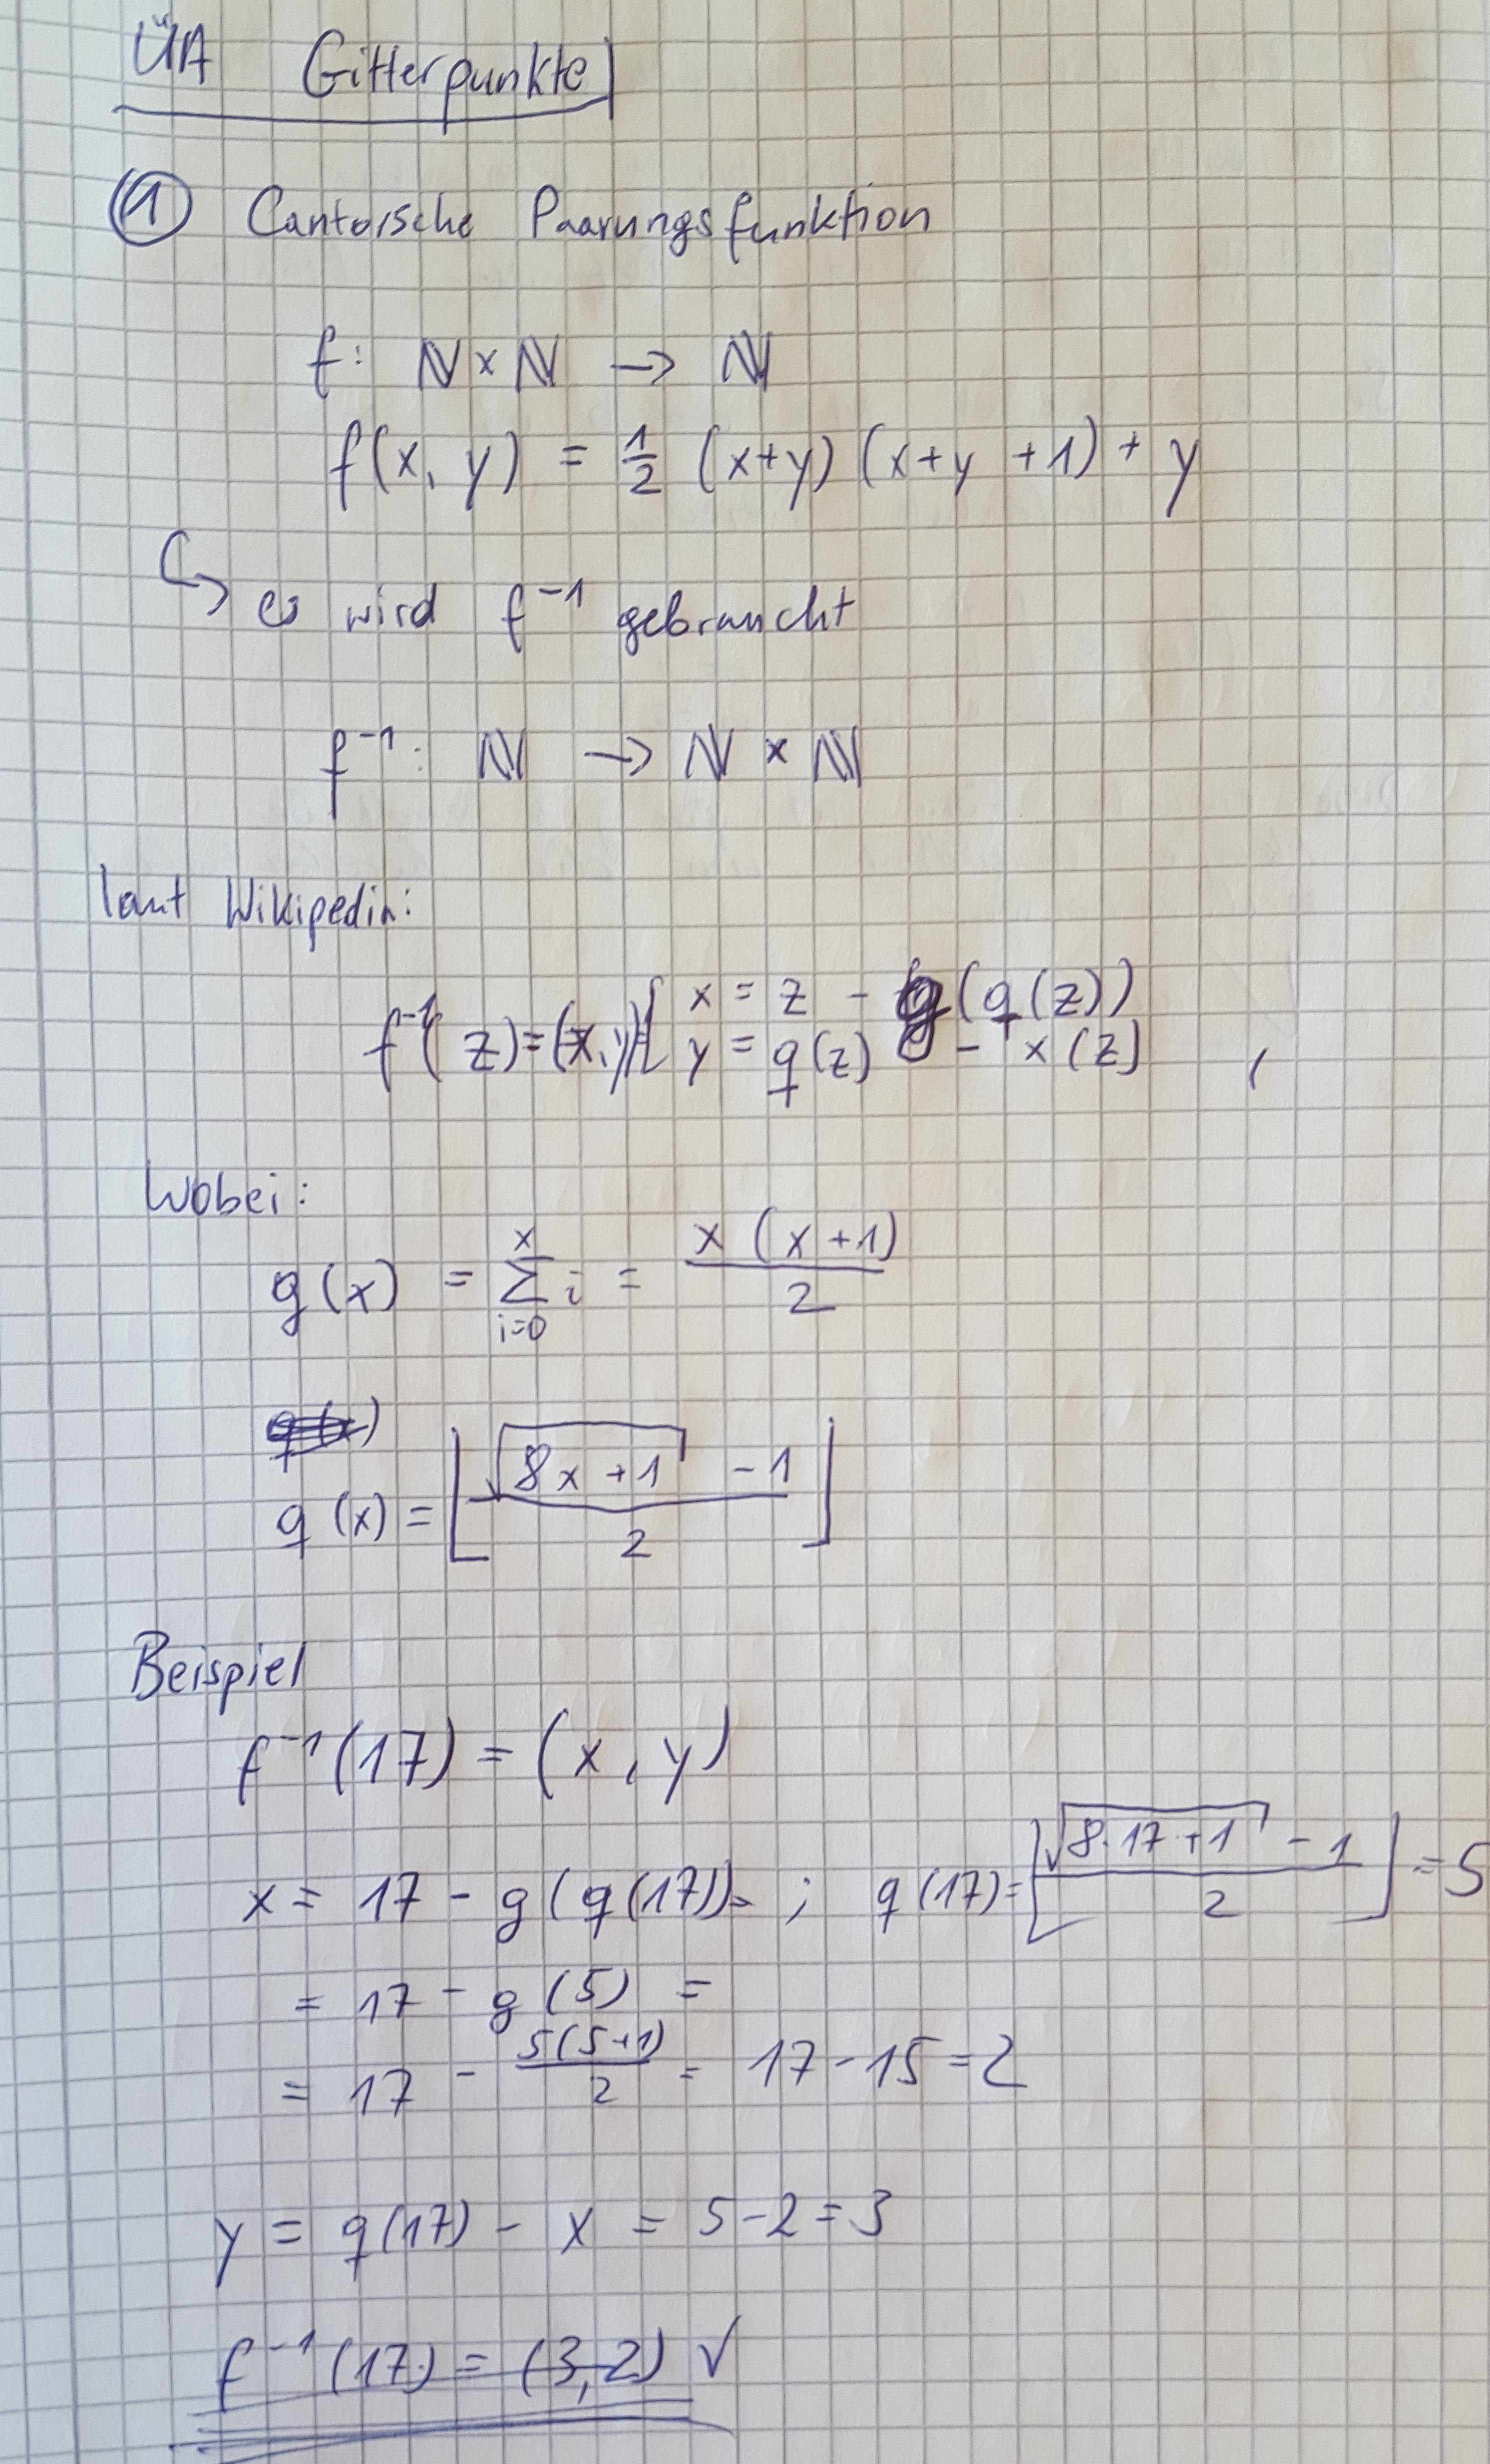 ÜA Gitterpunkte
① Cantorsche Paarungsfunktion
f: ℕ × ℕ → ℕ
f(x, y) = 1/2 (x+y) (x+y +1) + y
↳ es wird f⁻¹ gebraucht
f⁻¹: ℕ → ℕ × ℕ
laut Wikipedia:
f⁻¹(z)=(x,y){ x = z - g(q(z))
y = q(z) - x(z) ,
Wobei:
g(x) = Σ_{i=0}^{x} i = x (x+1) / 2
q(x) = ⌊ (√(8x+1) - 1) / 2 ⌋
Beispiel
f⁻¹(17) = (x, y)
x = 17 - g(q(17)) = ; q(17) = ⌊ (√(8·17+1) - 1) / 2 ⌋ = 5
= 17 - g(5) =
= 17 - 5(5+1)/2 = 17 - 15 = 2
y = q(17) - x = 5-2 = 3
f⁻¹(17) = (3,2) ✓